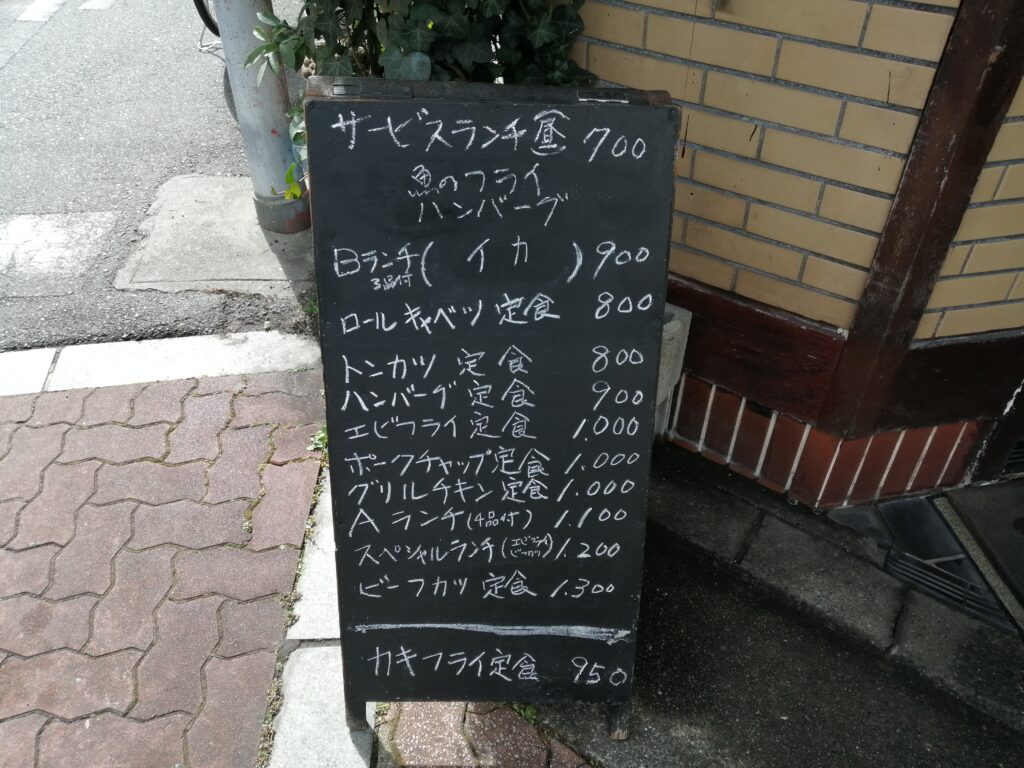 サービスランチ昼 700
魚のフライ
ハンバーグ
Bランチ 3品付 (イカ) 900
ロールキャベツ定食 800
トンカツ定食 800
ハンバーグ定食 900
エビフライ定食 1.000
ポークチャップ定食 1.000
グリルチキン定食 1.000
Aランチ(4品付) 1.100
スペシャルランチ(エビフライ ビフカツ) 1.200
ビーフカツ定食 1.300
カキフライ定食 950